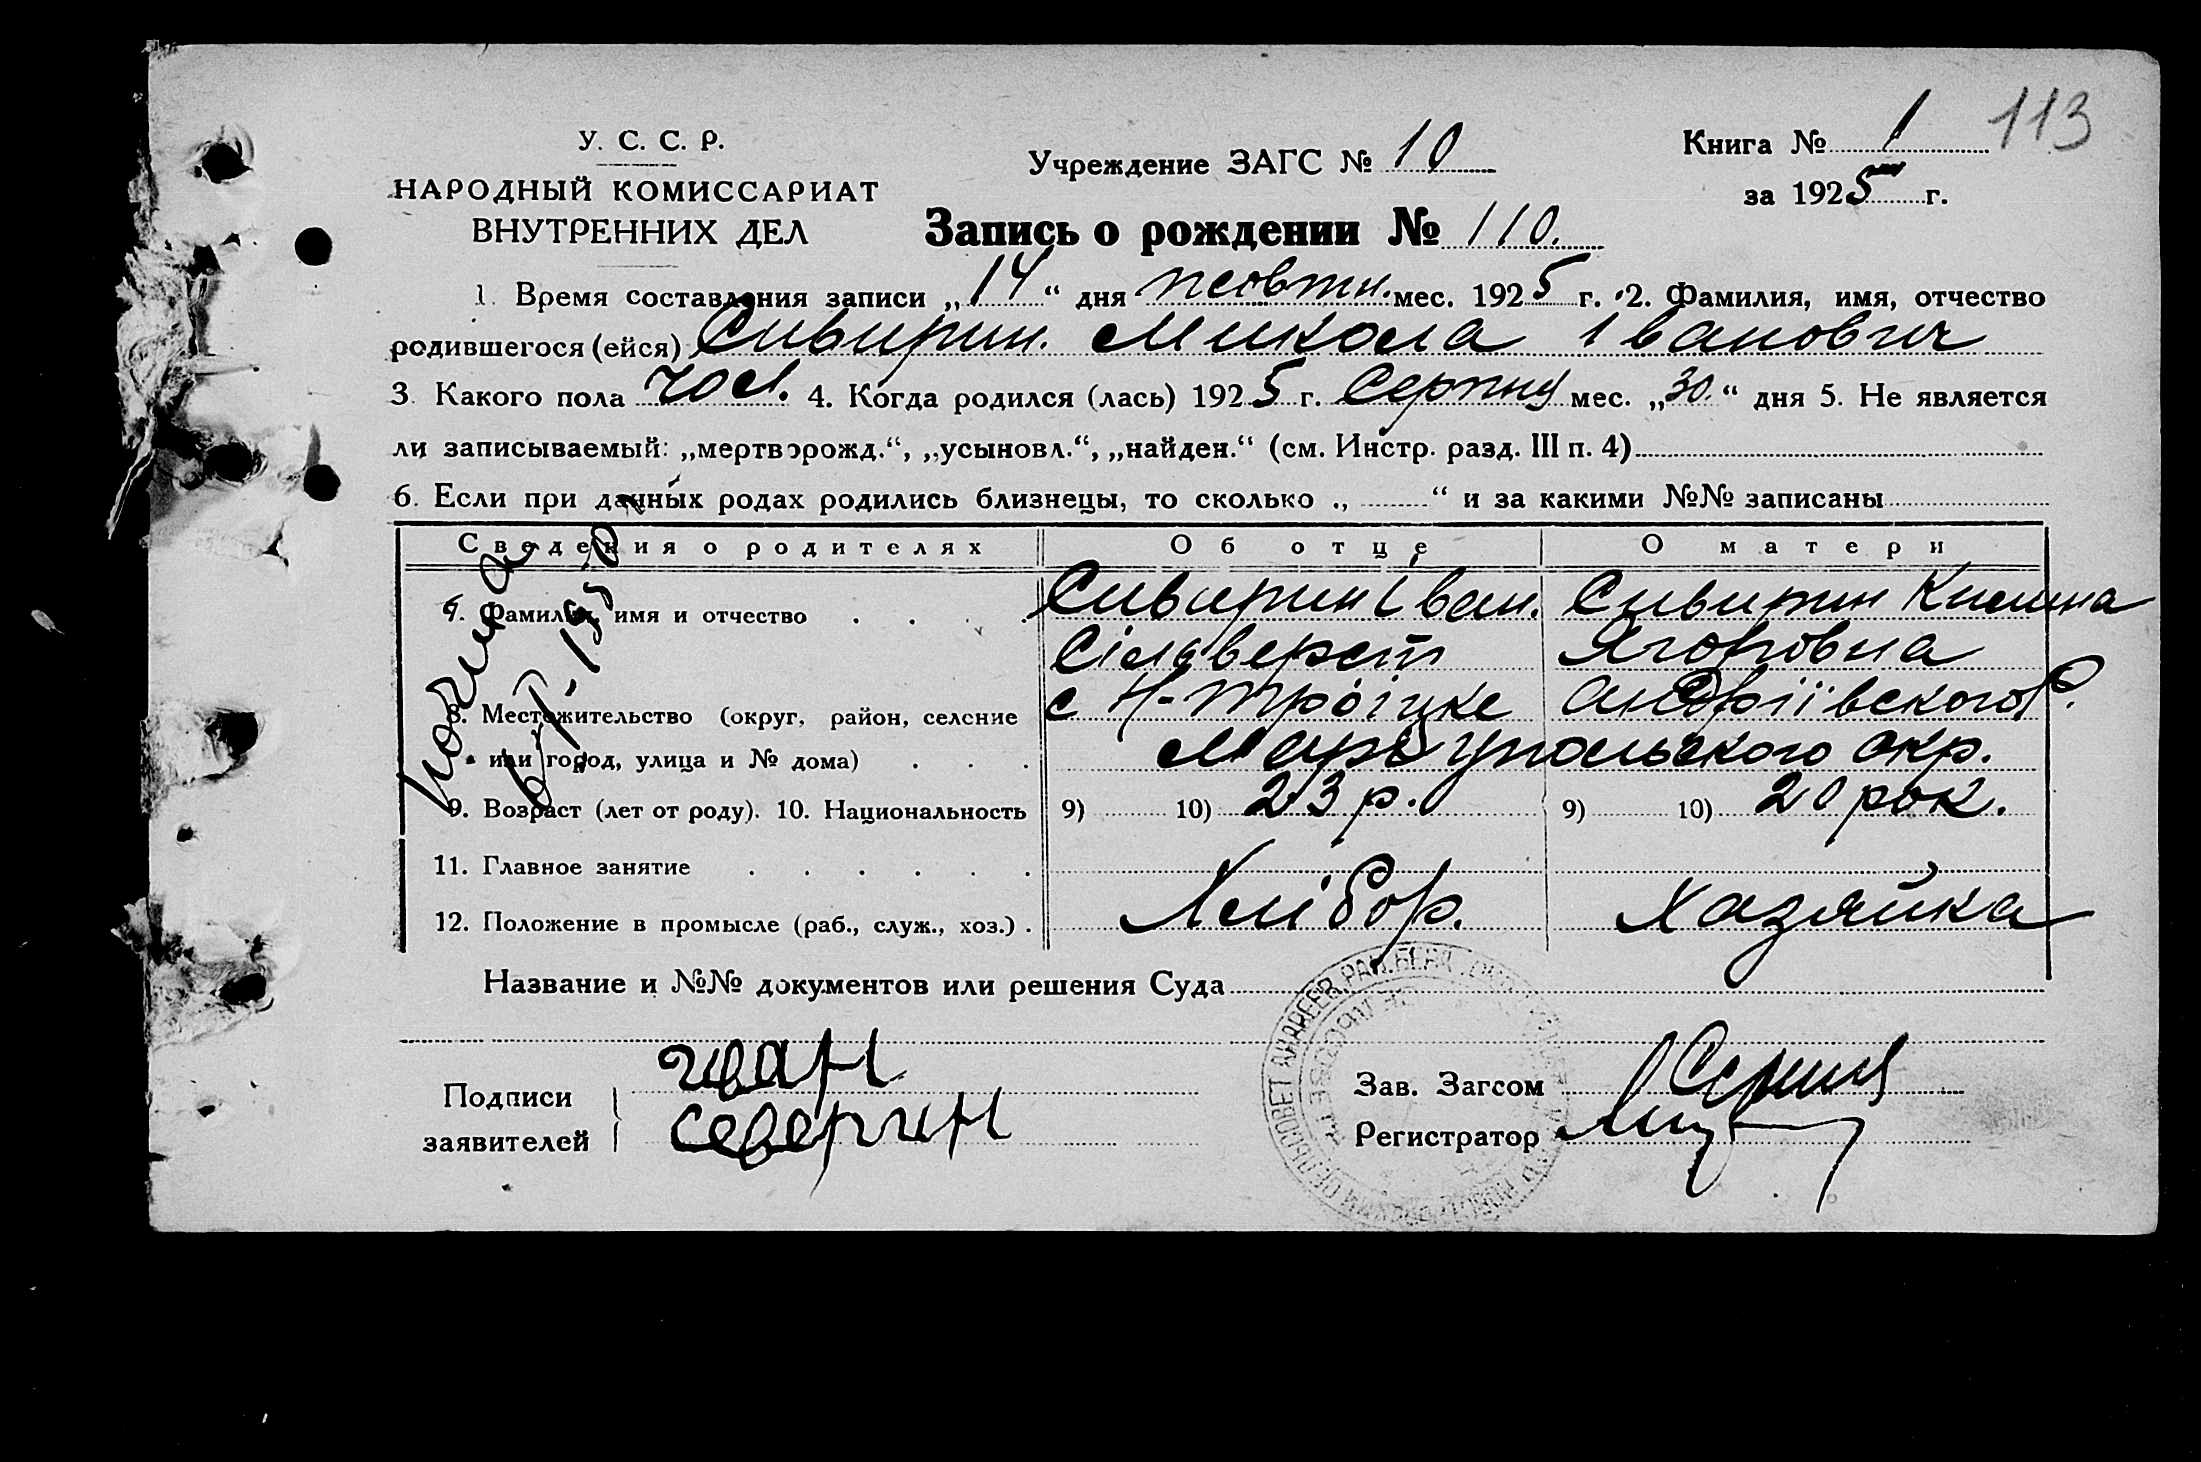 113
У. С. С. Р.
НАРОДНЫЙ КОМИССАРИАТ
ВНУТРЕННИХ ДЕЛ
Учреждение ЗАГС № 10
Книга № 1
за 1925 г.
Запись о рождении № 110.
1. Время составления записи „14“ дня жовтн. мес. 1925 г. 2. Фамилия, имя, отчество
родившегося (ейся) Сивирин. Микола Іванович
3. Какого пола чол. 4. Когда родился (лась) 1925 г. Серпня мес. „30.“ дня 5. Не является
ли записываемый: „мертворожд.“, „усыновл.“, „найден.“ (см. Инстр. разд. III п. 4)
6. Если при данных родах родились близнецы, то сколько „ “ и за какими №№ записаны
Сведения о родителях Об отце О матери
7. Фамилия, имя и отчество Сивирин Іван. Сивирин Килина
Сілвверст Ягоровна
8. Местожительство (округ, район, селение с Н-Троіцке Андріївского Р.
или город, улица и № дома) Маріупольского окр.
9. Возраст (лет от роду). 10. Национальность 9) 10) 23 р. 9) 10) 20 рок.
11. Главное занятие
12. Положение в промысле (раб., служ., хоз.) Хлібор. Хазяйка
Название и №№ документов или решения Суда
Подписи
заявителей
иван
северин
Зав. Загсом
Регистратор